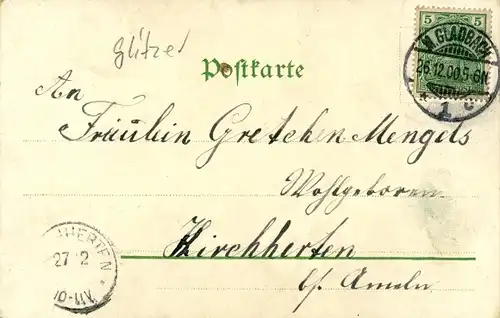 glitzer
5 5
M. GLADBACH
26.12.00.5-6N.
* 1 c *
Postkarte
An
Fräulein Gretchen Mengels
Wohlgeboren
Kirchherten
b/. Ameln
HERTEN
27 2
10-11V